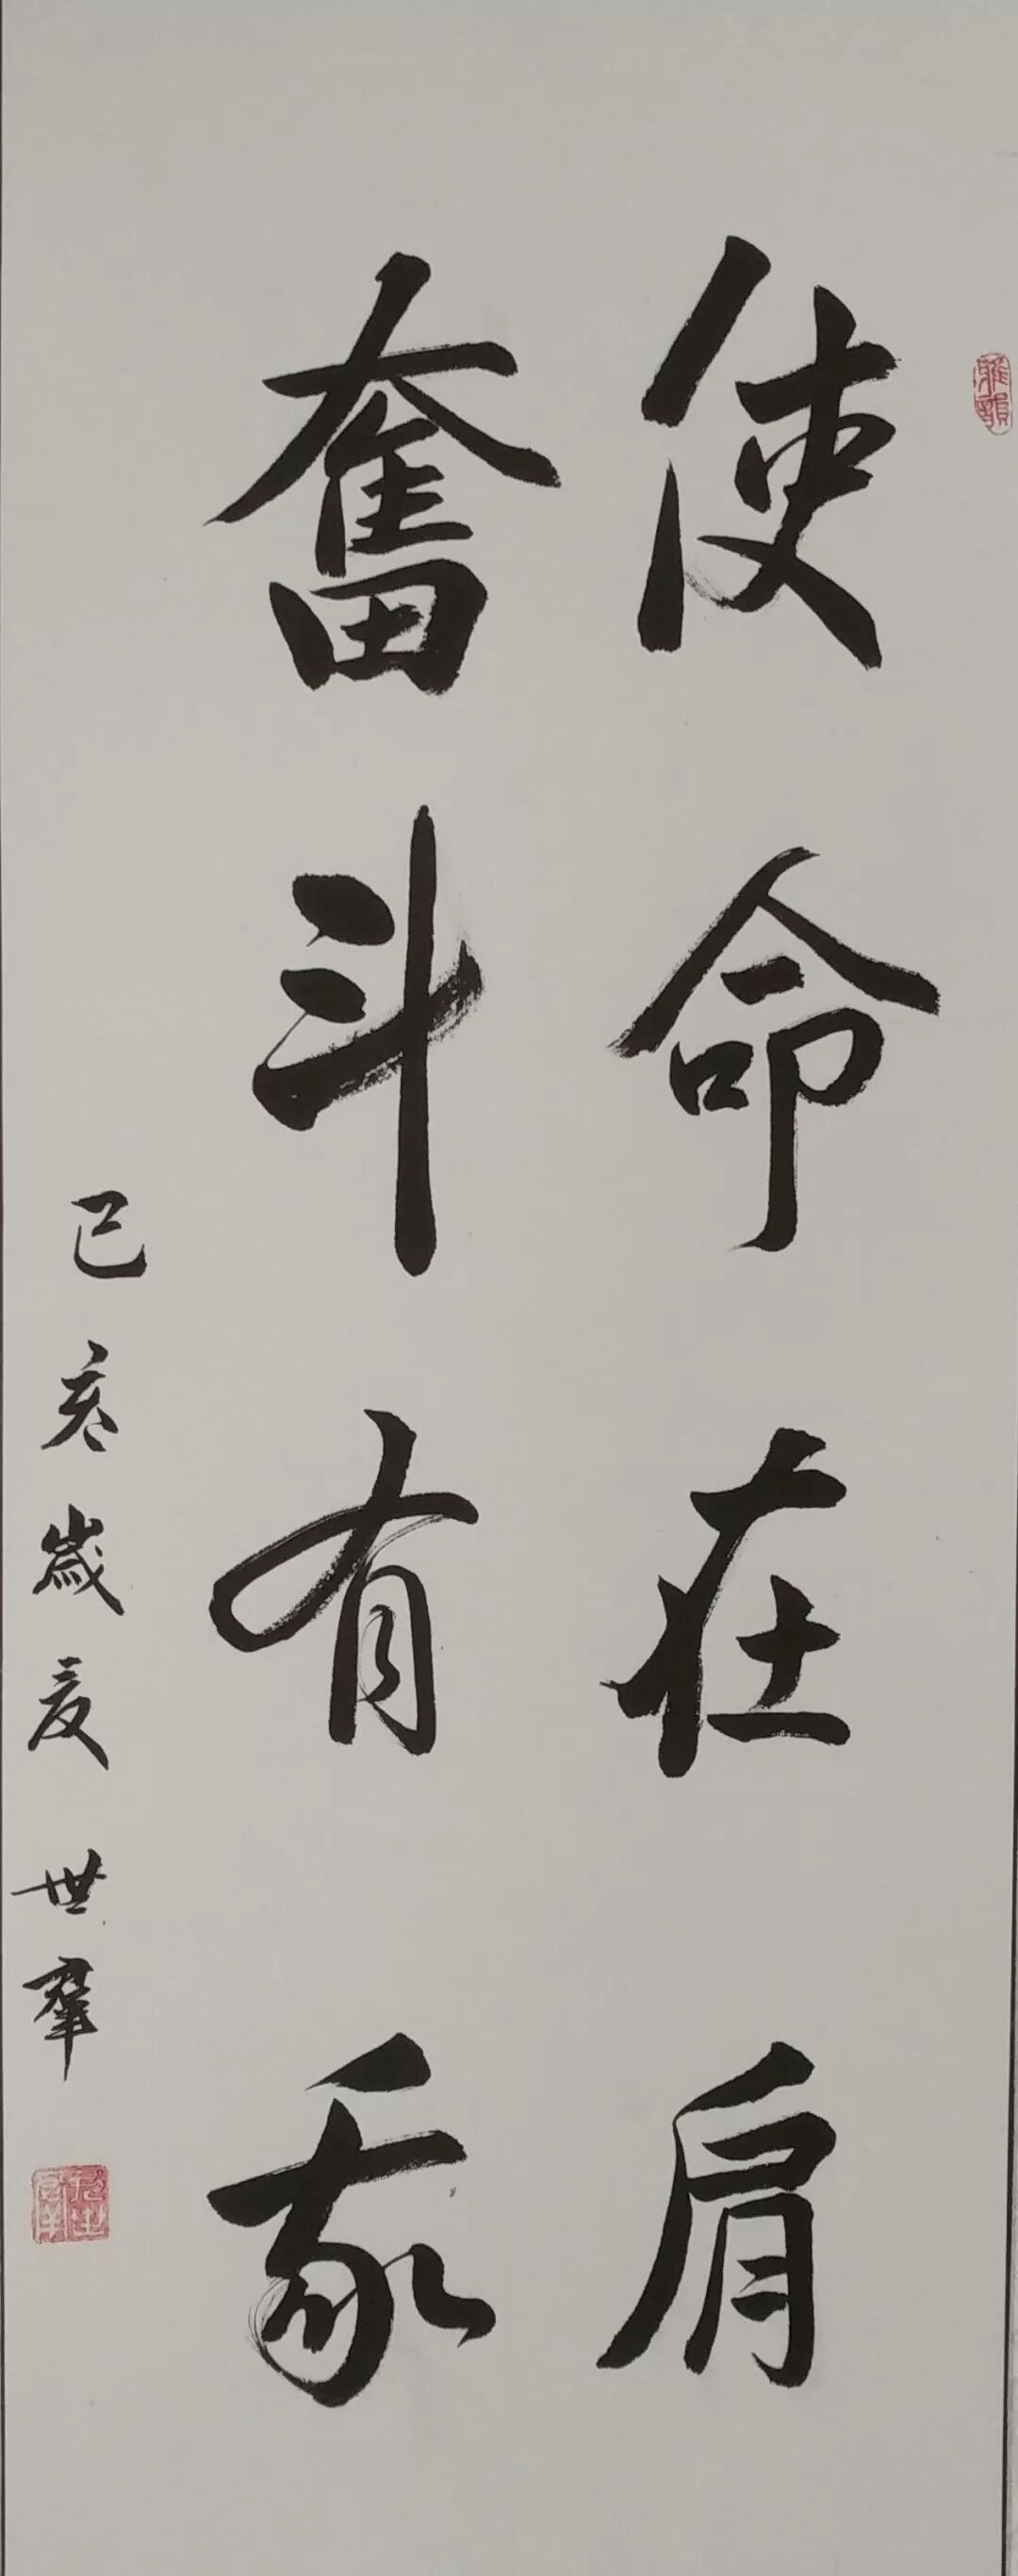 使命在肩
奮斗有我
己亥歲夏世羣
雅韻